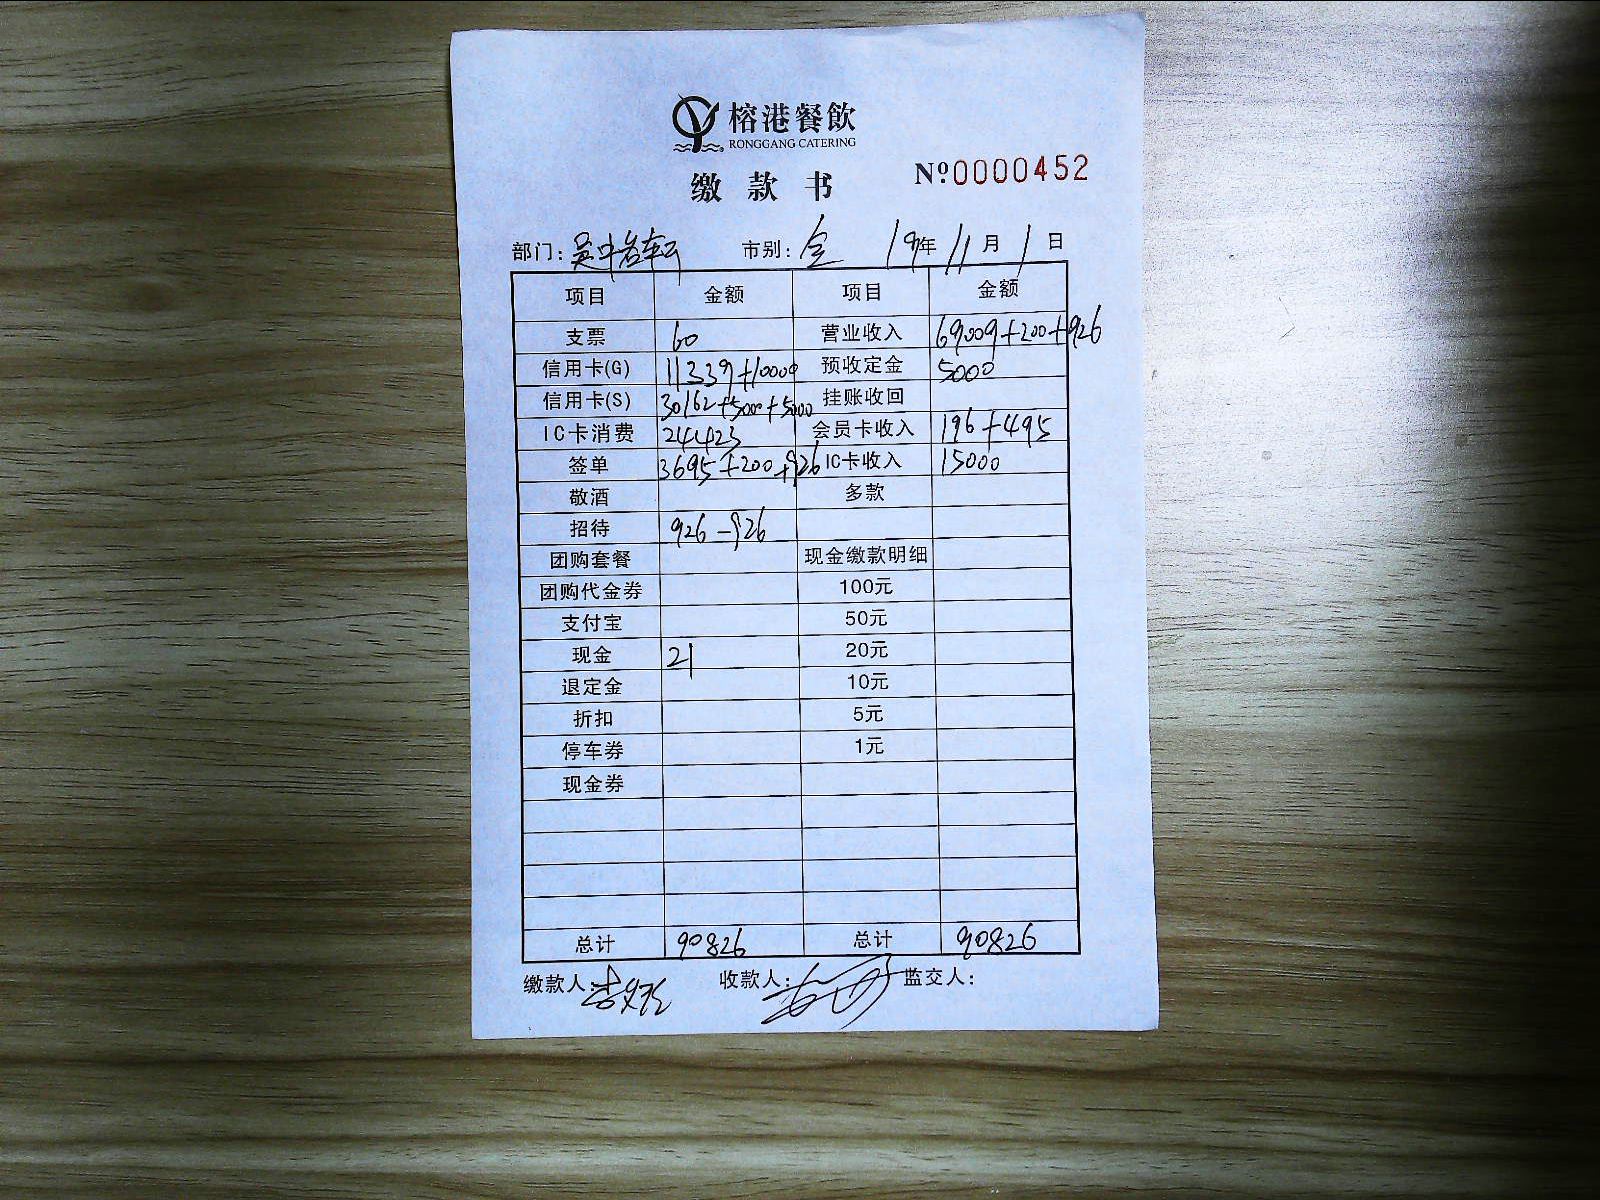 榕港餐飲
RONGGANG CATERING
缴款书 Nº0000452
部门: 吴中 市别: 全 19年 11月 1日
项目 金额 项目 金额
支票 60 营业收入 69009+200+926
信用卡(G) 11339+10000 预收定金 5000
信用卡(S) 30162+5000+5000 挂账收回
IC卡消费 24423 会员卡收入 196+495
签单 3695+200+926 IC卡收入 15000
敬酒 多款
招待 926-926
团购套餐 现金缴款明细
团购代金券 100元
支付宝 50元
现金 21 20元
退定金 10元
折扣 5元
停车券 1元
现金券
总计 90826 总计 90826
缴款人: 收款人: 监交人: